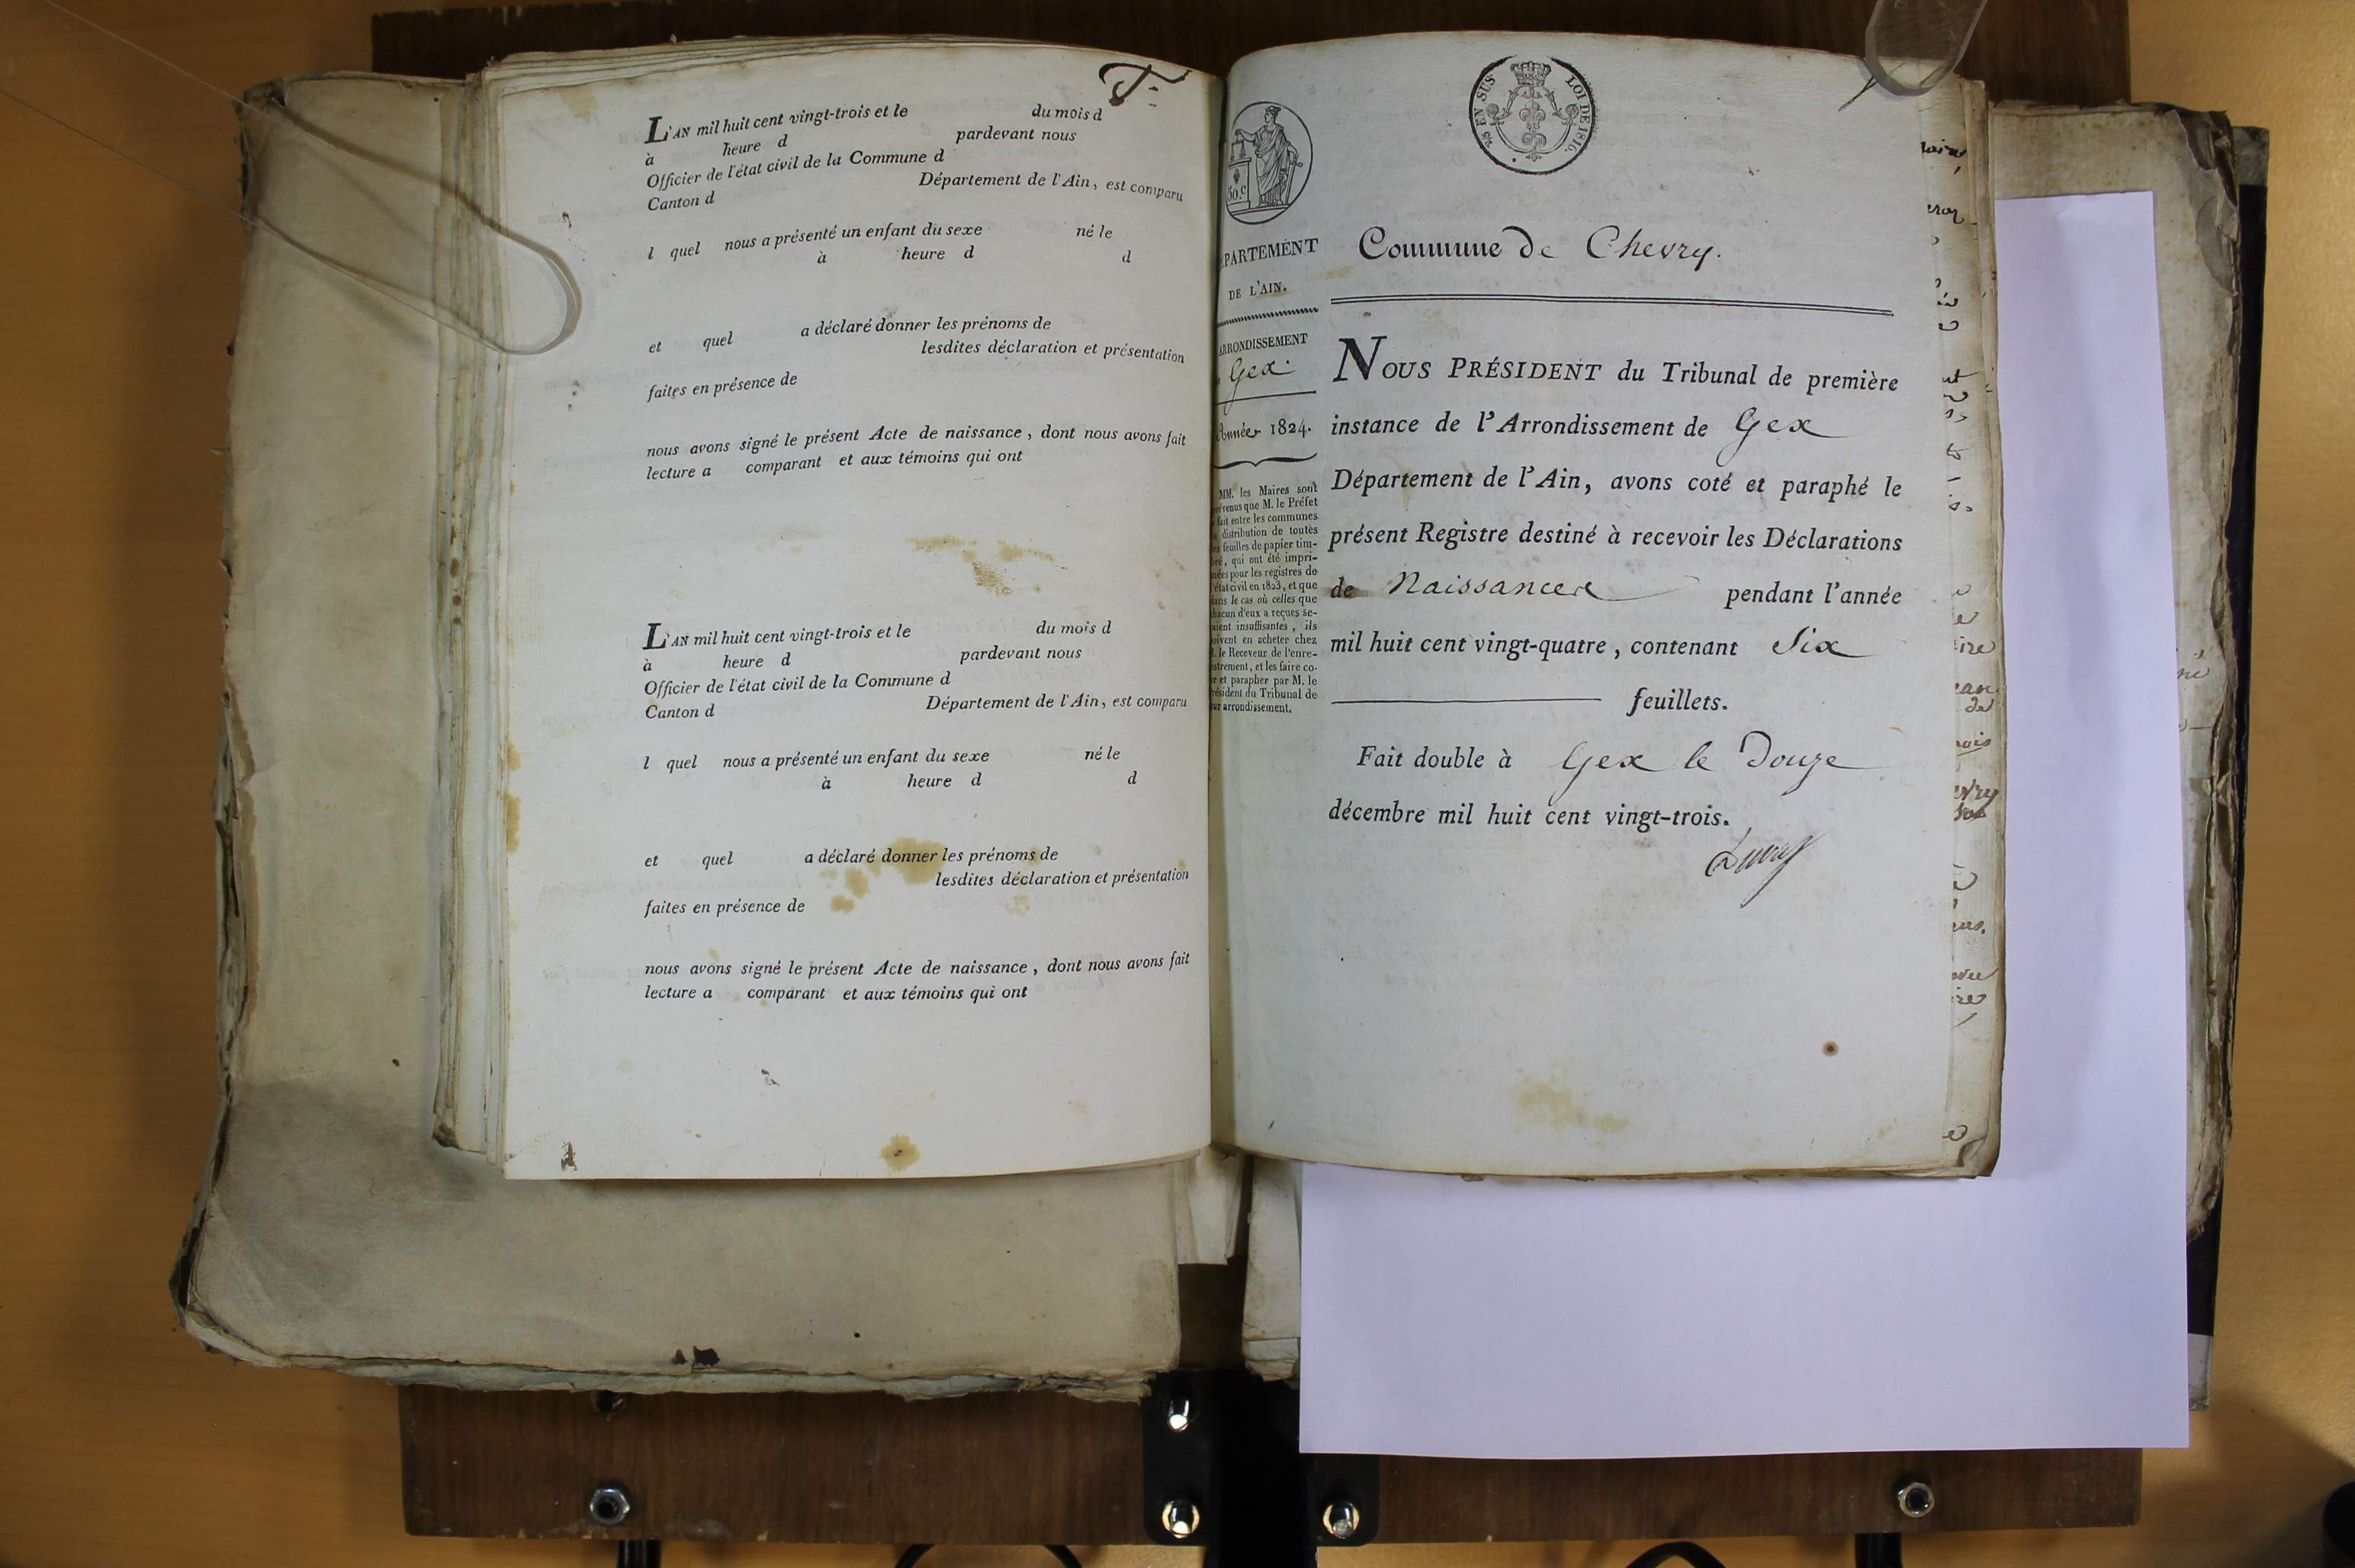 L'AN mil huit cent vingt-trois et le du mois d
à heure d pardevant nous
Officier de l'état civil de la Commune d
Canton d Département de l'Ain, est comparu
l quel nous a présenté un enfant du sexe né le
à heure d d
et quel a déclaré donner les prénoms de
lesdites déclaration et présentation
faites en présence de
nous avons signé le présent Acte de naissance, dont nous avons fait
lecture a comparant et aux témoins qui ont
L'AN mil huit cent vingt-trois et le du mois d
à heure d pardevant nous
Officier de l'état civil de la Commune d
Canton d Département de l'Ain, est comparu
l quel nous a présenté un enfant du sexe né le
à heure d d
et quel a déclaré donner les prénoms de
lesdites déclaration et présentation
faites en présence de
nous avons signé le présent Acte de naissance, dont nous avons fait
lecture a comparant et aux témoins qui ont
EN SUS LOI DE 1816.
50.c
PARTEMENT
DE L'AIN.
ARRONDISSEMENT
Gex
Année 1824.
MM. les Maires sont
venus que M. le Préfet
fait entre les communes
distribution de toutes
feuilles de papier tim-
, qui ont été impri-
ées pour les registres de
état civil en 1823, et que
ans le cas où celles que
hacun d'eux a reçues se-
aient insuffisantes, ils
oivent en acheter chez
. le Receveur de l'enre-
istrement, et les faire co-
er et parapher par M. le
résident du Tribunal de
ur arrondissement.
Commune de Chevry.
NOUS PRÉSIDENT du Tribunal de première
instance de l'Arrondissement de Gex
Département de l'Ain, avons coté et paraphé le
présent Registre destiné à recevoir les Déclarations
de Naissances pendant l'année
mil huit cent vingt-quatre, contenant Six
feuillets.
Fait double à Gex le Douze
décembre mil huit cent vingt-trois.